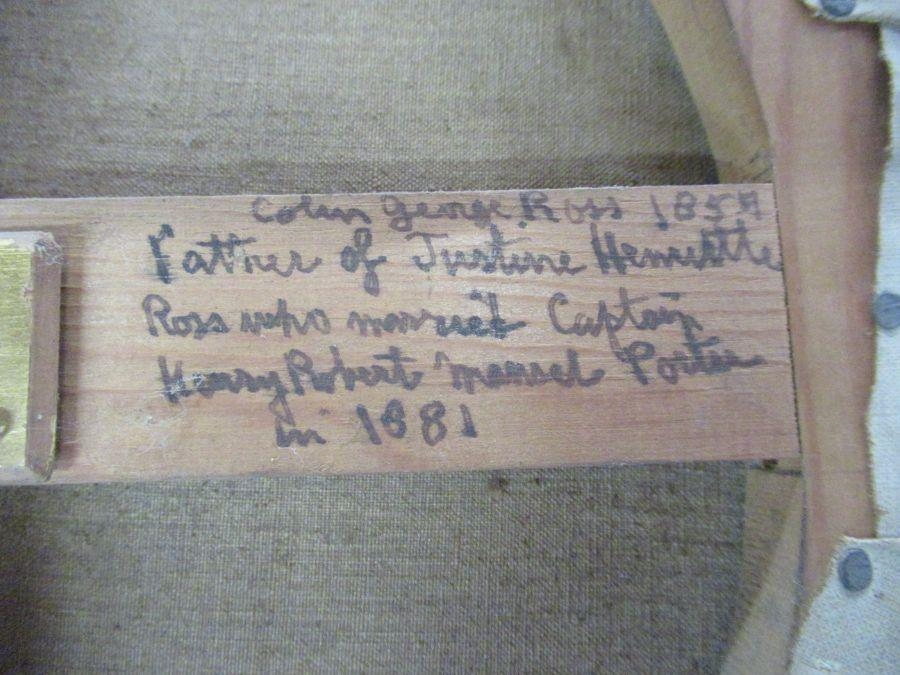 Colin George Ross 185
Father of Justine Henriette
Ross who married Captain
Henry Robert Mansel Porter
in 1881